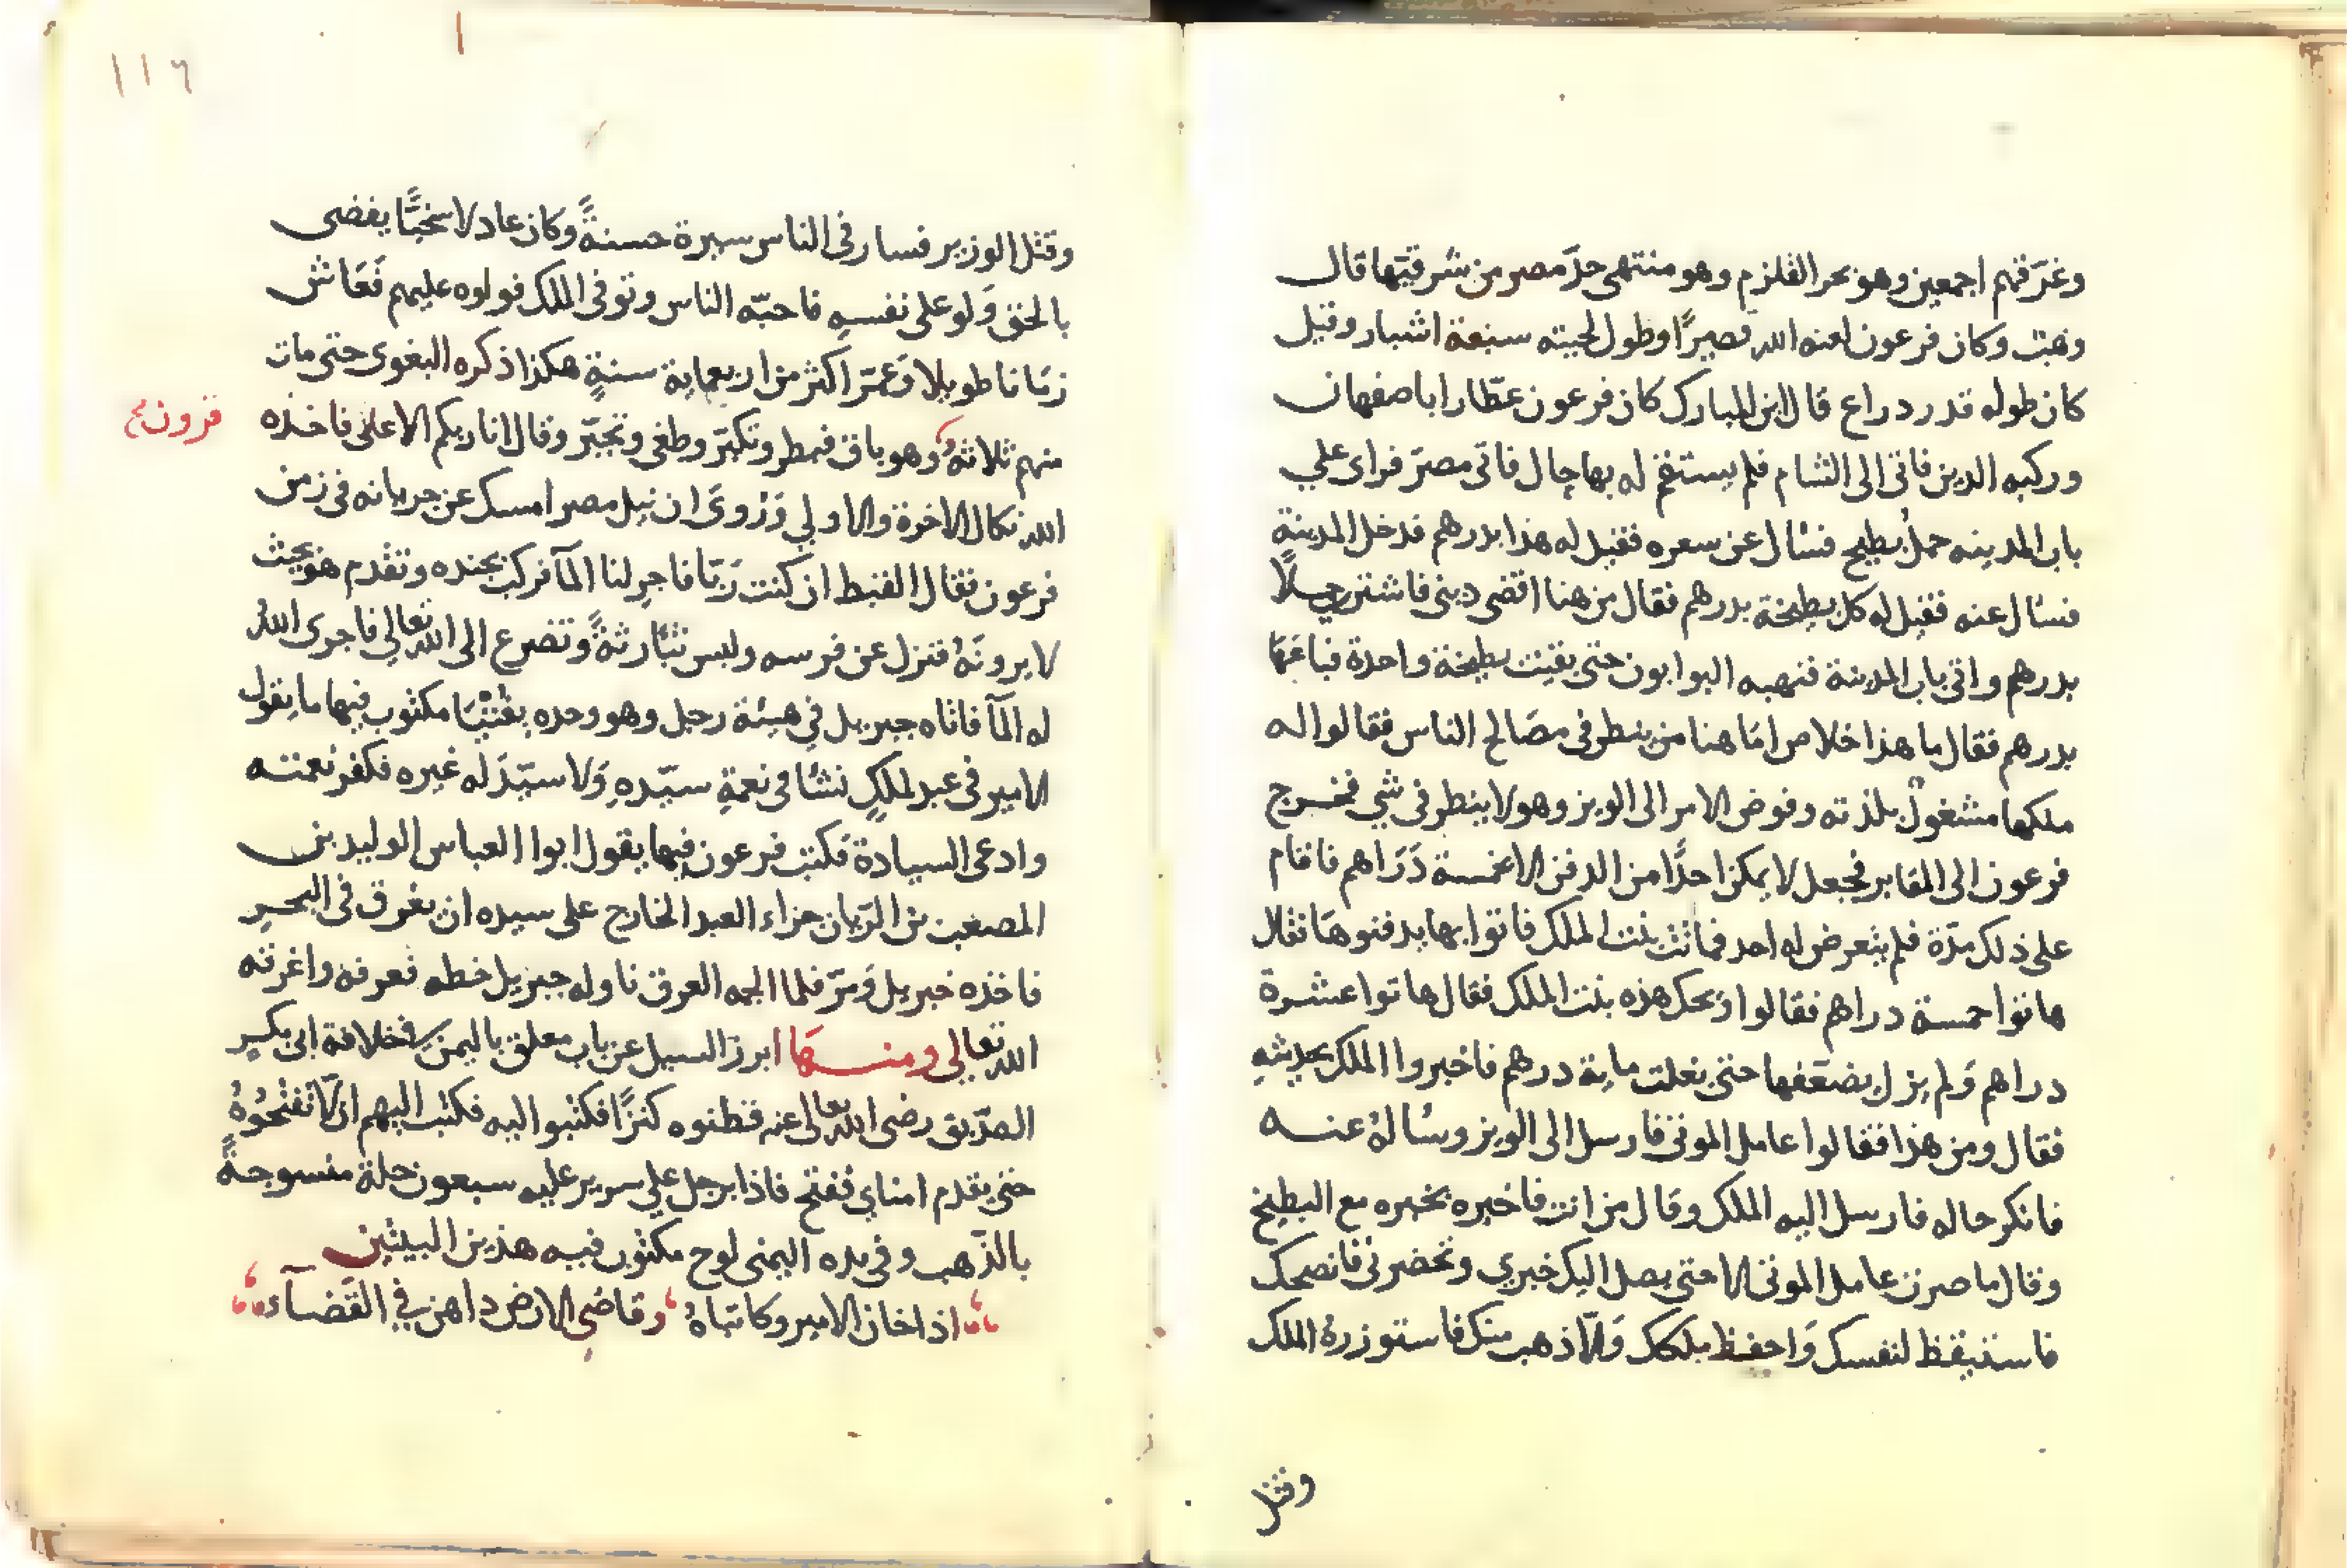 وغرقهم اجمعين وهو بحر القلزم وهو منتهى حدّ مصر من شرقيّها قال
وهب وكان فرعون لعنه الله قصيرًا وطول لحيته سبعة اشبار وقيل
كان طوله قدر دراع قال ابن المبارك كان فرعون عطّارا باصفهان
وركبه الدين فاتى الى الشام فلم يستقم له بها حال فاتى مصر فراى على
باب المدينه حمل بطيح فسال عن سعره فقيل له هذا بدرهم فدخل المدينة
فسال عنه فقيل له كل بطيخة بدرهم فقال من هنا اقضى دينى فاشترى حملاً
بدرهم واتى باب المدينة فنهبه البوابون حتى بقيت بطيخة واحدة فباعها
بدرهم فقال ما هذا خلاص امَا هنا من ينطر فى مصَالح الناس فقالوا له
ملكها مشغولٌ بلذته وفوض الامر الى الويز وهو لا ينطر فى شي فخرج
فرعون الى المقابر فجعل لا يمكن احدًا من الدفن الا بخمسة دَرَاهم فاقام
على ذلك مدّة فلم يتعرض له احد فماتت بنت الملك فاتوا بها يدفنوهَا فقال
هاتوا خمسة دراهم فقالوا وَيحك هذه بنت الملك فقال هاتوا عشرة
دراهم وَلم يزل يضعّفها حتى بلغت ماية درهم فاخبروا الملك بحديثهِ
فقال ومن هذا فقالوا عامل الموتى فارسل الى الويز وسالهُ عنه
فانكر حاله فارسل اليه الملك وقال من انت فاخبره بخبره مع البطيخ
وقال ما صرت عامل الموتى الا حتى يصل اليك خبري وتحضرنى فانصحك
فاستيقظ لنفسك وَاحفظ ملكك وَالّا ذهب منك فاستوزرهُ الملك
وقتل
١١٦
وقتل الوزير فسار فى الناس سيرة حسنةً وكان عادلا سخيًّا يقضى
بالحق وَلو على نفسهِ فاحبّه الناس وتوفى الملك فولوه عليهم فَعَاش
زمَانا طويلا وَعمّر اكثر من اربعماية سنةٍ هكذا ذكره البغوى حتى مات
منهم ثلاثة وهو باق فبطر وتكبّر وطغى وتجبّر وقال انا ربكم الاعلى فاخذه
الله نكال الاخرة والاولي وَرُوىَ ان نيل مصر امسك عن جريانه فى زمن
فرعون فقال القبط ان كنت رَبّا فاجرِ لنا المآ فركب بجنده وتقدم هو بحيث
لا يرونَهُ فنزل عن فرسه ولبس ثيابًا رثةً وتضرع الى الله تعالي فاجرى اللهُ
له المآ فاتاه جبريل فى هيئة رجل وهو وحده بفُتْيَا مكتوب فيها ما يقول
الامير فى عبد لملكٍ نشا فى نعمةِ سيّدهِ وَلا سيّدَ له غيره فكفر نعمته
وادعى السيادة فكتب فرعون فيها يقول ابوا العباس الوليد بن
المصعب بن الرّيان جزاء العبد الخارج على سيده ان يغرق فى البحر
فاخذه جبريل وَمرّ فلما الجمه العرق ناوله جبريل خطه فعرفه واغرقه
الله تعالي ومنها ابرز السيل عن باب معلق باليمن فى خلافة ابى بكر
الصدّيق رضى الله تعالى عنه فظنوه كنزًا فكتبوا اليه فكتب اليهم ان لا تفتحُوهُ
حتى يقدم امناي ففتح فاذا برجل على سرير عليه سبعون حلة منسوجةً
بالذّهب وفى يده اليمنى لوح مكتوب فيه هذين البيتين
اذا خان الامير وكاتباهُ وقاضى الارض داهن في القَضآء